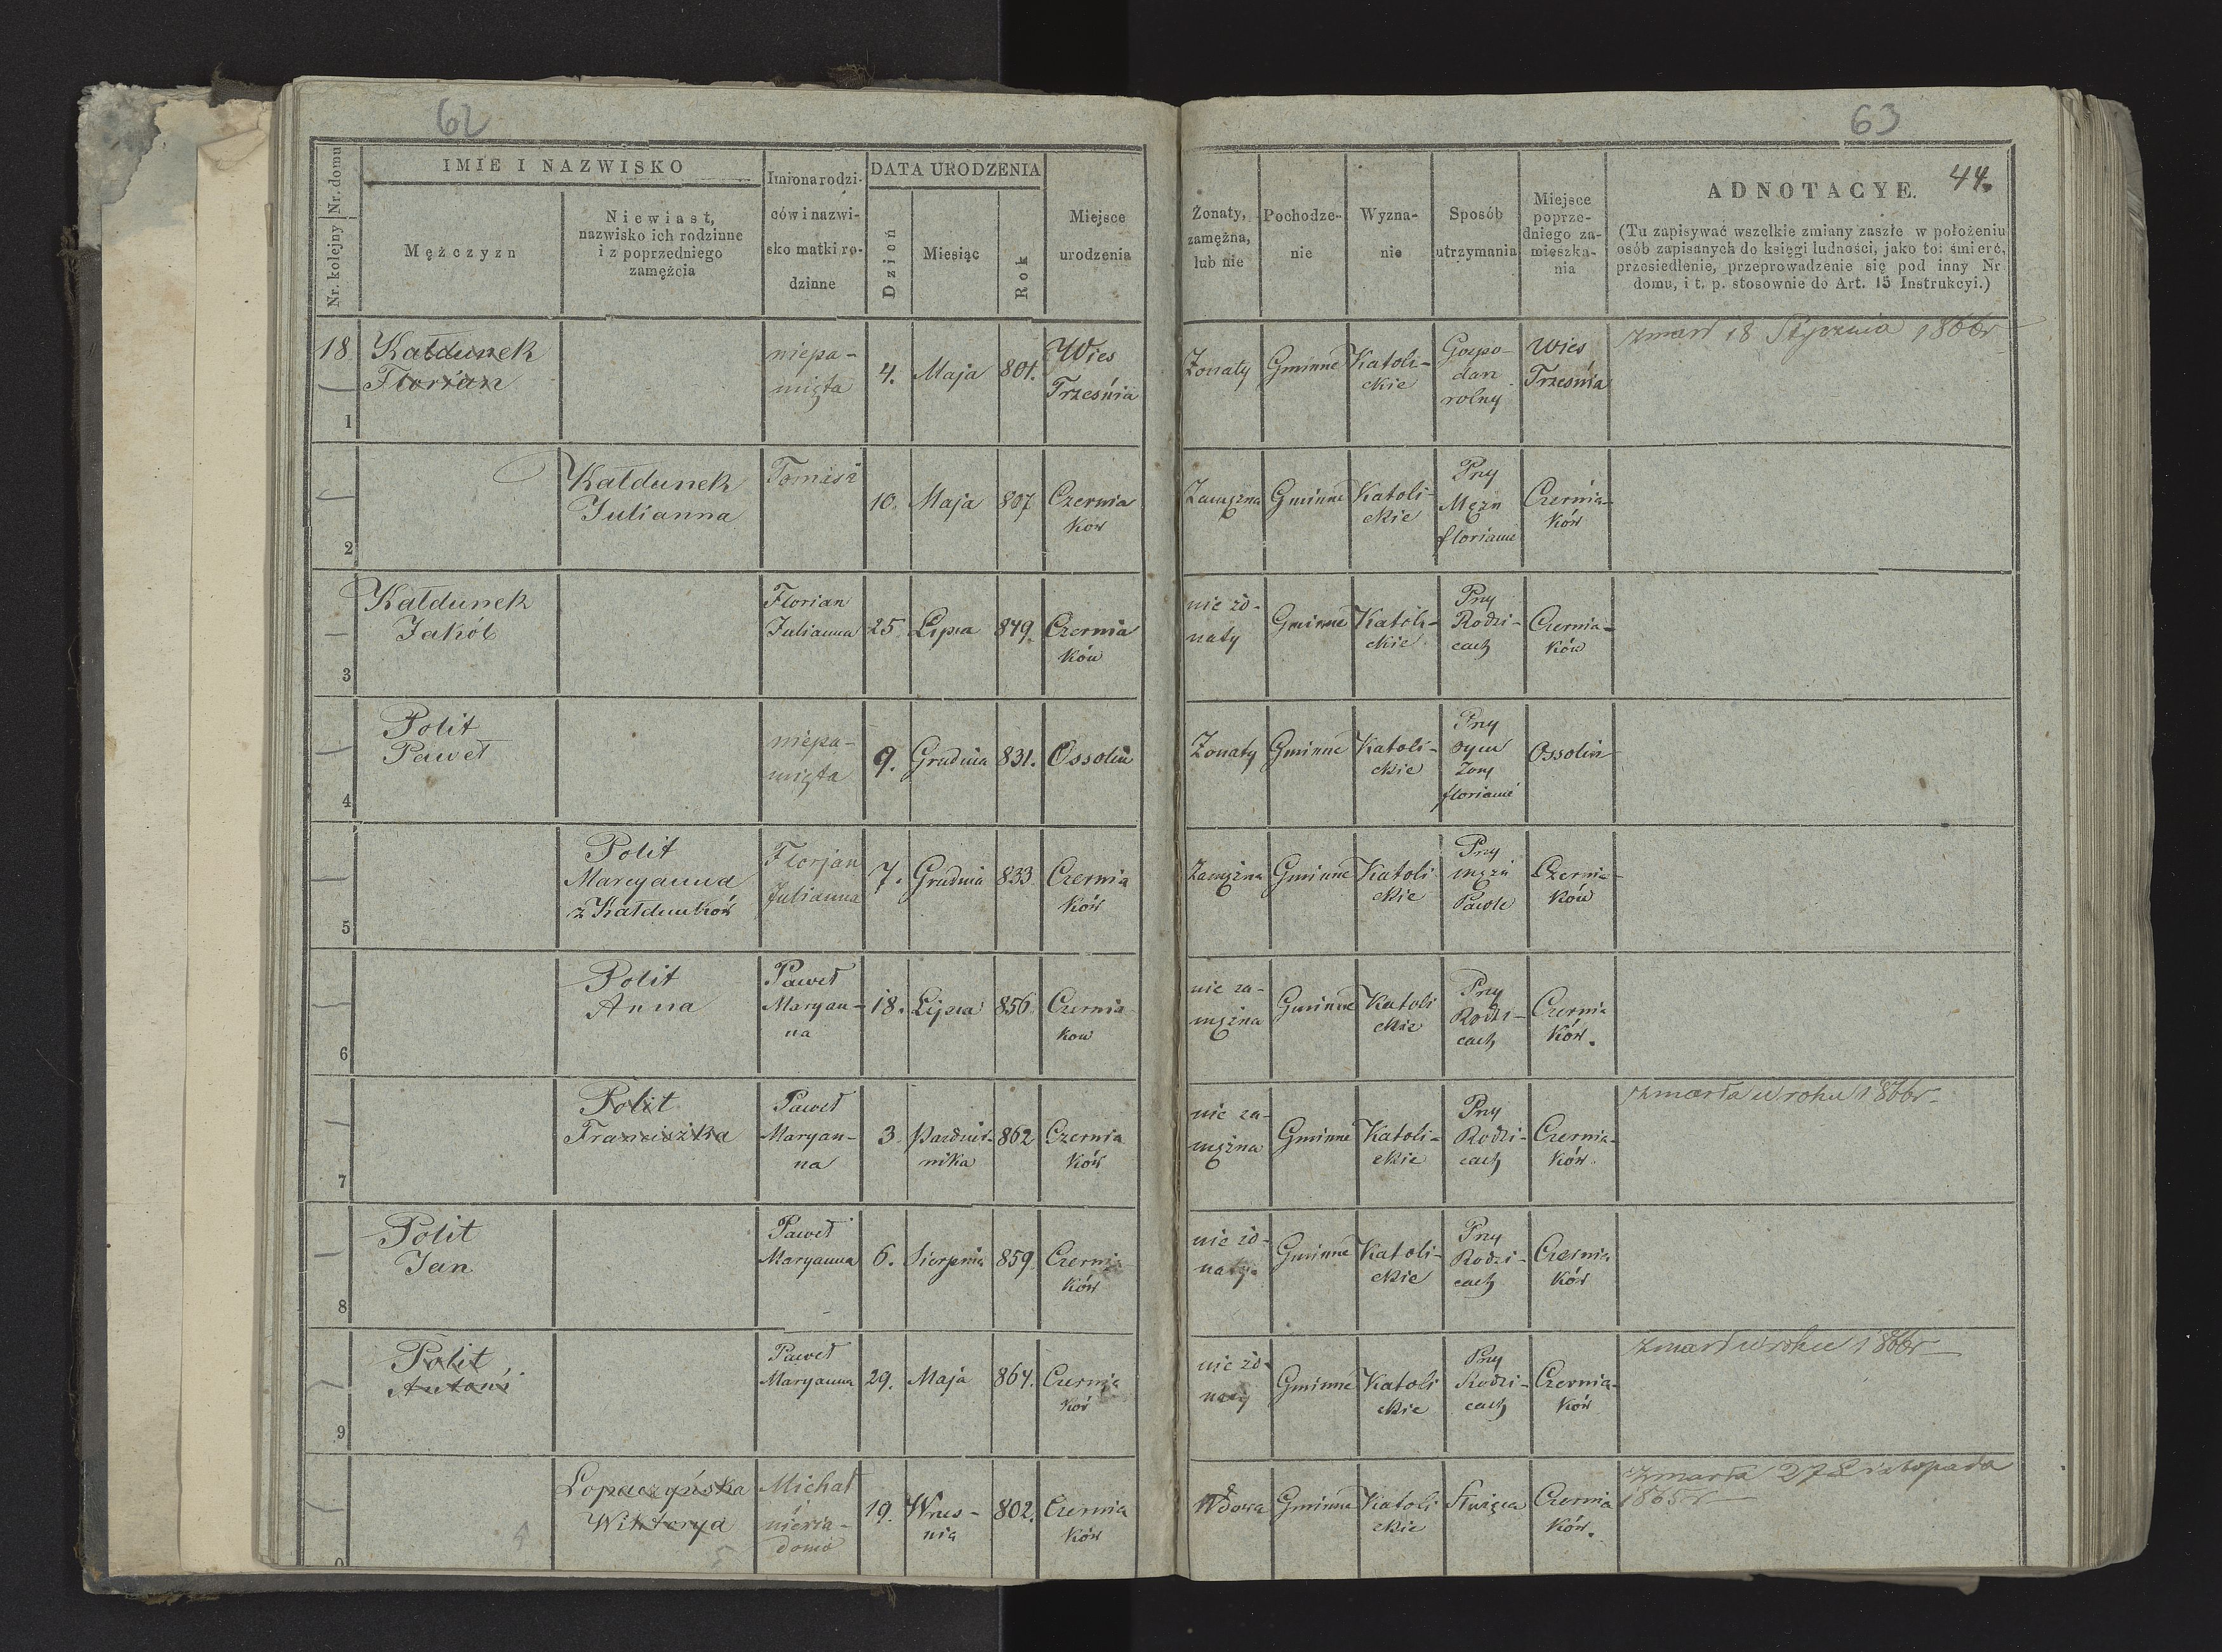 62
63
44.
Nr. kolejny | Nr. domu
IMIE I NAZWISKO
Mężczyzn
Niewiast,
nazwisko ich rodzinne
i z poprzedniego
zamężcia
Imiona rodzi-
ców i nazwi-
sko matki ro-
dzinne
DATA URODZENIA
Dzień
Miesiąc
Rok
Miejsce
urodzenia
Żonaty,
zamężna,
lub nie
Pochodze-
nie
Wyzna-
nie
Sposób
utrzymania
Miejsce
poprze-
dniego za-
mieszka-
nia
ADNOTACYE.
(Tu zapisywać wszelkie zmiany zaszłe w położeniu
osób zapisanych do księgi ludności, jako to: śmierć,
przesiedlenie, przeprowadzenie się pod inny Nr.
domu, i t. p. stosownie do Art. 15 Instrukcyi.)
18
1
Kałdunek
Florian
niepa-
mięta
4.
Maja
801.
Wies
Trześnia
Żonaty
Gminne
Katoli-
ckie
Gospo-
darz
rolny
Wies
Trzesnia
zmarł 18 Stycznia 1866r
2
Kałdunek
Julianna
Tomasz
10.
Maja
807
Czernia
ków
Zamężna
Gminne
Katoli-
ckie
Przy
Mężu
florianie
Czernia-
ków
3
Kałdunek
Jakób
Florian
Julianna
25.
Lipca
849.
Czernia
ków
nie żo-
naty
Gminne
Katoli-
ckie
Przy
Rodzi-
cach
Czernia-
ków
4
Polit
Paweł
niepa-
mięta
9.
Grudnia
831.
Ossolin
Żonaty
Gminne
Katoli-
ckie
Przy
oycu
żony
florianie
Ossolin
5
Polit
Maryanna
z Kałdunków
Florjan
Julianna
7.
Grudnia
833
Czernia
ków
Zamężna
Gminne
Katoli
ckie
Przy
mężu
Pawle
Czernia-
ków
6
Polit
Anna
Paweł
Maryan-
na
18.
Lipca
856
Czernia
kow
nie za-
mężna
Gminne
Katoli
ckie
Przy
Rodzi-
cach
Czernia
ków.
7
Polit
Franciszka
Paweł
Maryan-
na
3
Pazdzier-
nika
862
Czernia
ków
nie za-
mężna
Gminne
Katoli-
ckie
Przy
Rodzi-
cach
Czernia-
ków.
zmarła w roku 1866r
8
Polit
Jan
Paweł
Maryanna
6.
Sierpnia
859
Czernia
ków
nie żo-
naty
Gminne
Katoli-
ckie
Przy
Rodzi-
cach
Czernia
ków
9
Polit
Antoni
Paweł
Maryanna
29.
Maja
864.
Czernia
ków
nie żo-
naty
Gminne
Katoli
ckie
Przy
Rodzi-
cach
Czernia-
ków
zmarł w roku 1866r
0
Łopaczyńska
Wiktorya
Michał
i
niewia-
doma
19.
Wrześ-
nia
802.
Czernia
ków
Wdowa
Gminne
Katoli
ckie
Służąca
Czernia
ków.
zmarła 27 Listopada
1865r